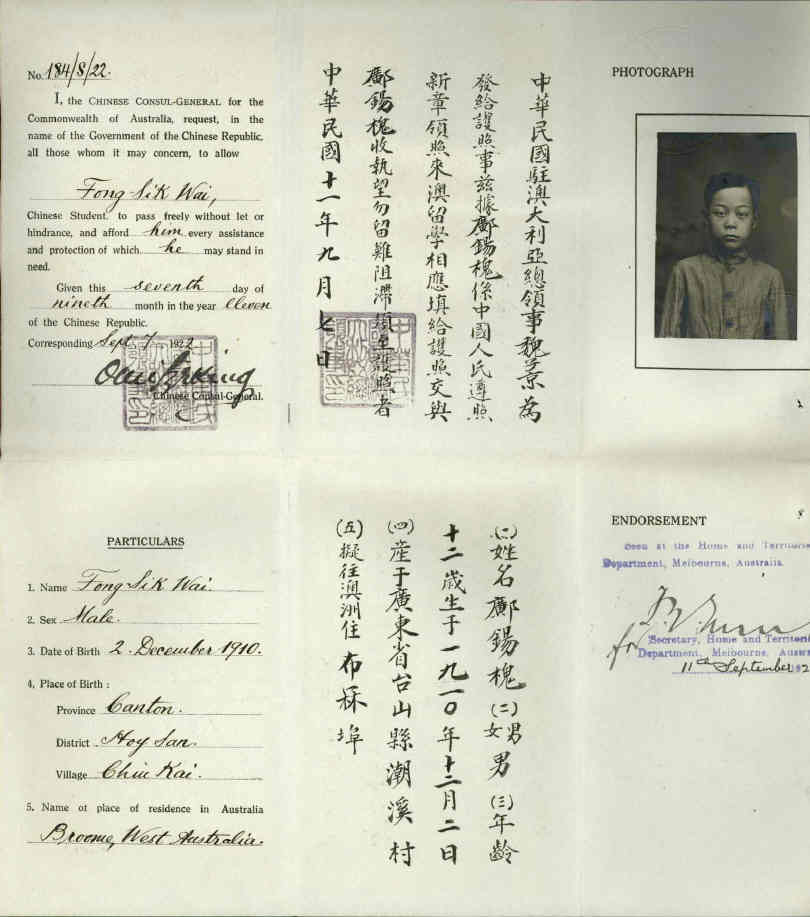 No. 184/8/22.
I, the CHINESE CONSUL-GENERAL for the
Commonwealth of Australia, request, in the
name of the Government of the Chinese Republic,
all those whom it may concern, to allow
Fong Sik Wai,
Chinese Student, to pass freely without let or
hindrance, and afford him every assistance
and protection of which he may stand in
need.
Given this seventh day of
nineth month in the year Eleven
of the Chinese Republic.
Corresponding Sept. 7 1922
Chinese Consul-General.
中華民國駐澳大利亞總領事魏 為
發給護照事茲據鄺錫槐係中國人民遵照
新章領照來澳留學相應填給護照交與
鄺錫槐收執望勿留難阻滯須至護照者
中華民國十一年九月七日
PHOTOGRAPH
PARTICULARS
1. Name Fong Sik Wai.
2. Sex Male.
3. Date of Birth 2. December 1910.
4. Place of Birth :
Province Canton.
District Hoy San.
Village Chiu Kai.
5. Name of place of residence in Australia
Broome, West Australia.
(一)姓名鄺錫槐(二)男女男(三)年齡
十二歲生于一九一〇年十二月二日
(四)產于廣東省台山縣潮溪村
(五)擬往澳洲住布冧埠
ENDORSEMENT
Seen at the Home and Territorie
Department, Melbourne, Australia.
for Secretary, Home and Territori
Department, Melbourne, Austra
11th September 192